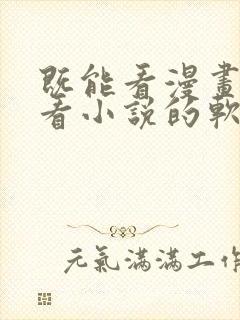 既能看漫畫
看小說的軟
元氣滿滿工作